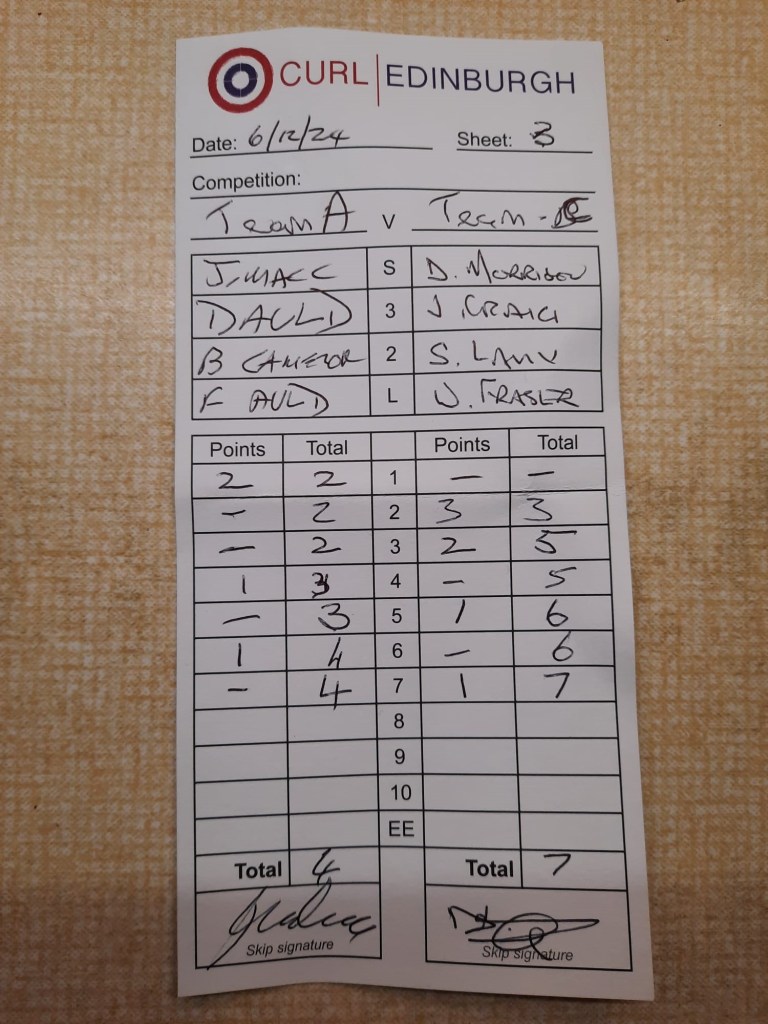 CURL EDINBURGH
Date: 6/12/24 Sheet: 3
Competition:
Team A v Team
S D. MORRISON
D AULD 3 J. CRAIG
B CAMERON 2 S.
F AULD L FRASER
Points Total Points Total
2 2 1 — —
- 2 2 3 3
— 2 3 2 5
1 3 4 - 5
— 3 5 1 6
1 4 6 — 6
- 4 7 1 7
8
9
10
EE
Total 4 Total 7
Skip signature Skip signature